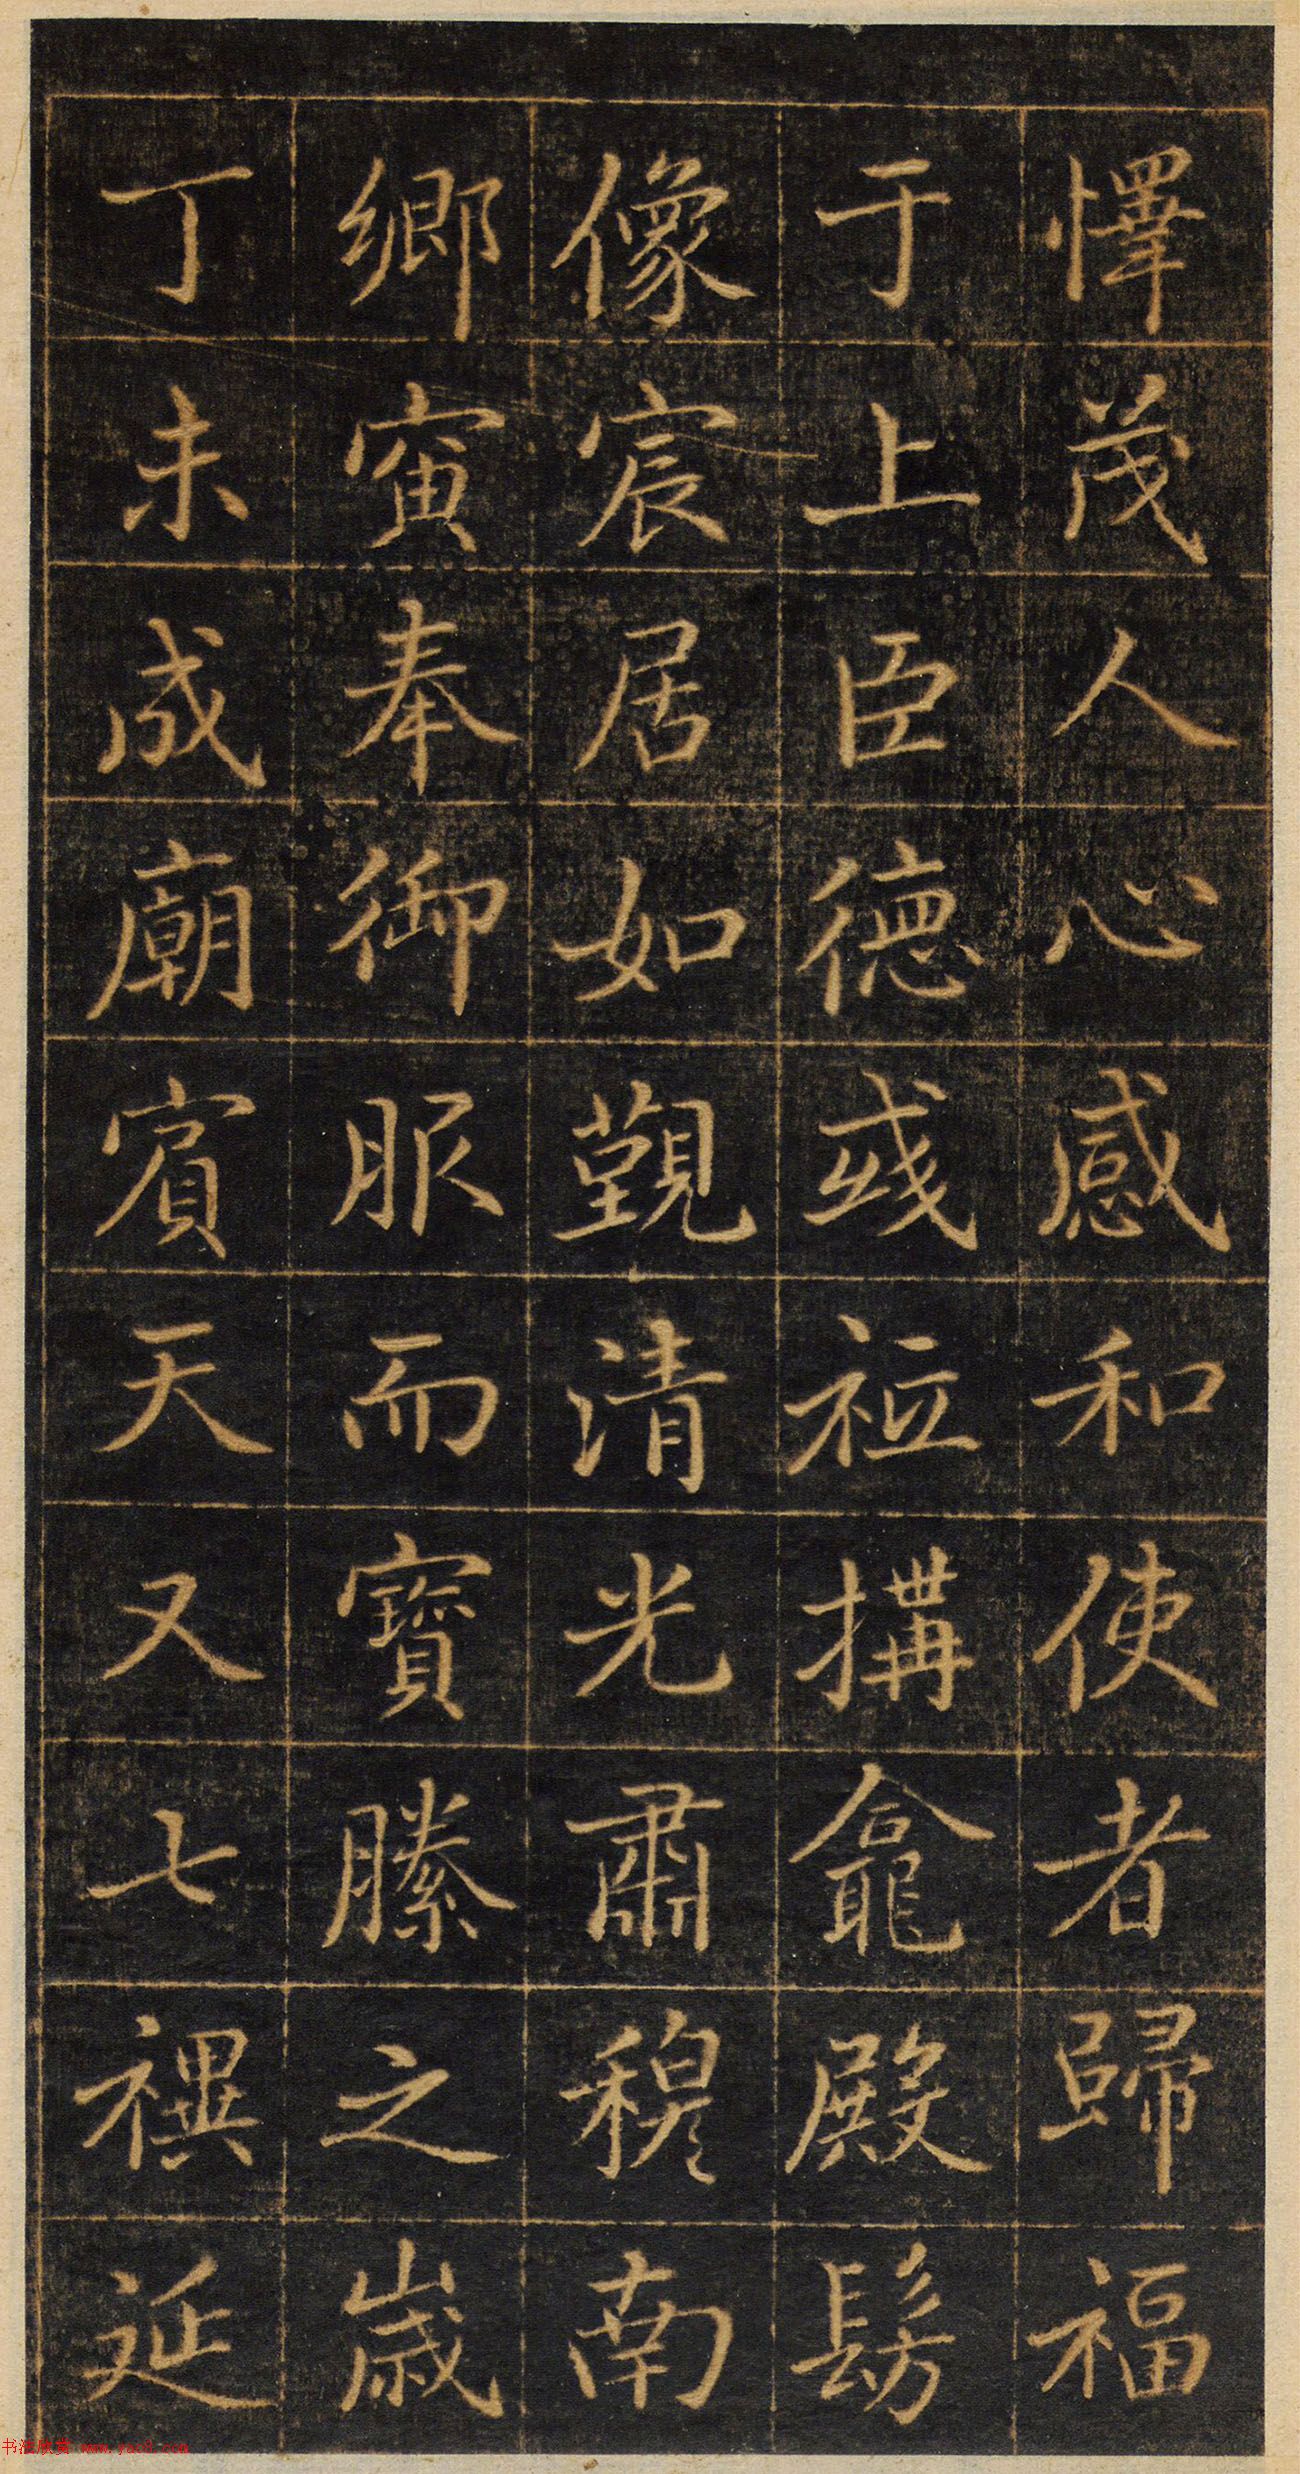 懌茂人心感和使者歸福
于上臣德彧祗搆龕殿髣
像宸居如覲清光肅穆南
鄉寅奉御服而寶縢之歲
丁未成廟賓天又七禩延
书法欣赏 www.yac8.com